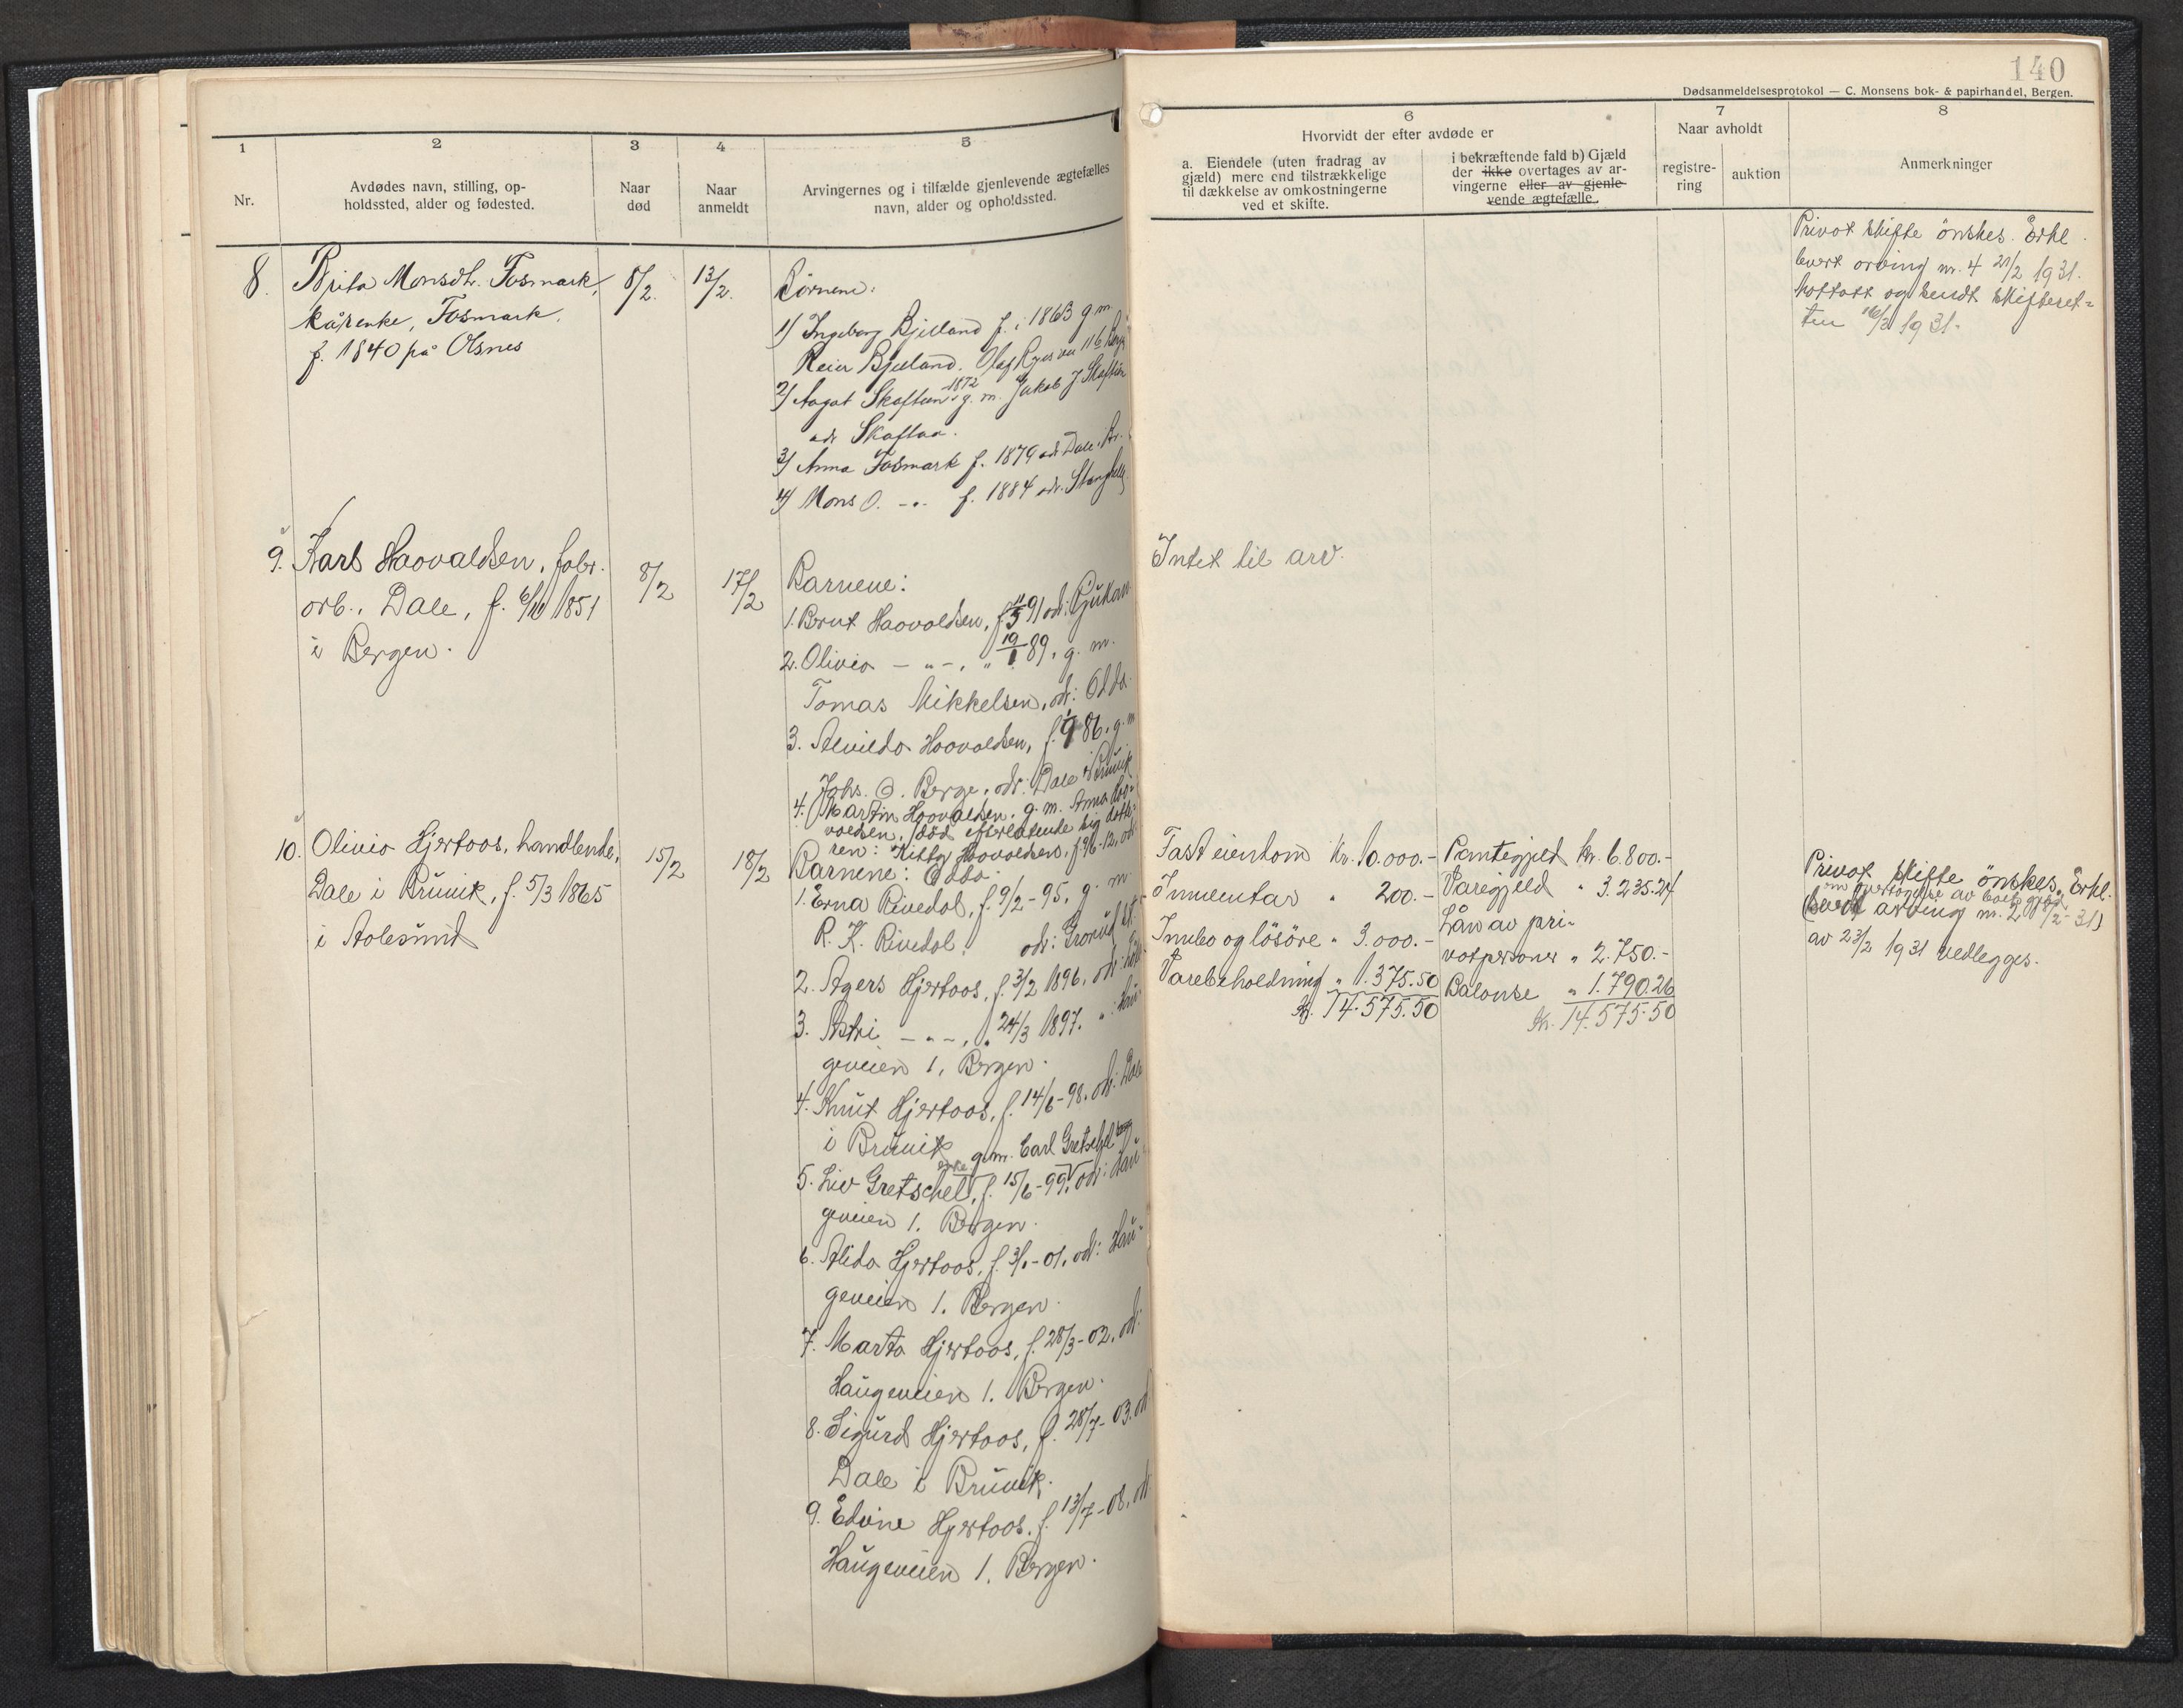 140
Dødsanmeldelsesprotokol — C. Monsens bok- & papirhandel, Bergen.
1
Nr.
2
Avdødes navn, stilling, op-
holdssted, alder og fødested.
3
Naar
død
4
Naar
anmeldt
5
Arvingernes og i tilfælde gjenlevende ægtefælles
navn, alder og opholdssted.
6
Hvorvidt der efter avdøde er
a. Eiendele (uten fradrag av
gjæld) mere end tilstrækkelige
til dækkelse av omkostningerne
ved et skifte.
i bekræftende fald b) Gjæld
der ikke overtages av ar-
vingerne eller av gjenle-
vende ægtefælle.
7
Naar avholdt
registre-
ring
auktion
8
Anmerkninger
8.
Brita Monsdt. Fosmark,
kårenke, Fosmark.
f. 1840 på Olsnes
8/2.
13/2.
Börnene:
1) Ingeborg Bjelland f. i 1863 g m.
Reier Bjelland. Olaf Ryes vei 116 Berg
2) Aagot Skaftun 1872 g. m. Jakob J Skaftun
adr Skaftaa.
3) Anna Fosmark f. 1879 adr Dale i Br.
4) Mons O. -"- f. 1884 adr. Stanghelle
Privat skifte önskes. Erkl.
levert arving nr. 4 21/2 1931.
Mottatt og sendt skifteret-
ten 1931.
9.
Karl Haavaldsen, fabr.
arb., Dale, f. 6/10 1851
i Bergen.
8/2
17/2
Barnene:
1. Bernt Haavaldsen, f 11/5 91 adr: Rjukan.
2. Olivia -"-, " 19/1 89, g. m.
Tomas Mikkelsen, adr: Odda.
3. Alvilda Haavaldsen, f. 86, g. m
Johs. O. Berge, adr: Dale i Bruvik
4. Martin Haavaldsen, g. m. Anna Haa-
valdsen, död efterlatende sig datte-
ren: Kitty Haavaldsen, f. 9/6-12, adr:
Odda.
Intet til arv.
10.
Olivia Hjertaas, handlende,
Dale i Bruvik, f. 5/3 1865
i Aalesund
15/2
18/2
Barnene:
1. Erna Rivedal, f. 9/2-95, g. m
R. K. Rivedal, adr: Grorud st.
2. Agers Hjertaas, f. 3/2 1896, adr:
3. Astri -"-, " 24/3 1897. " : Hau-
geveien 1, Bergen.
4. Knut Hjertaas, f. 14/6-98, adr: Dale
i Bruvik
enke g.m. Carl Gretschel
5. Liv Gretschel, f. 15/6-99, adr: Hau-
geveien 1. Bergen.
6. Alida Hjertaas, f. -01, adr: Hau-
geveien 1. Bergen.
7. Marta Hjertaas, f. 28/3-02, adr:
Haugeveien 1. Bergen.
8. Sigurd Hjertaas, f. 28/7-03. adr
Dale i Bruvik.
9. Edvine Hjertaas, f. 13/7-08, adr
Haugeveien 1. Bergen.
Fast eiendom Kr. 10.000.-
Inventar " 200.-
Innbo og lösöre " 3.000.-
Varebeholdning " 1.375.50
Kr. 14.575.50
Pantegjeld Kr. 6.800.-
Varegjeld " 3.235.24
Lån av pri-
vatpersoner " 2.750.-
Balanse " 1.790.26
Kr. 14.575.50
Privat skifte önskes. Erkl.
om overtagelse av boets gjeld
(levert arving nr. 2 18/2-31)
av 23/2 1931 vedlegges.